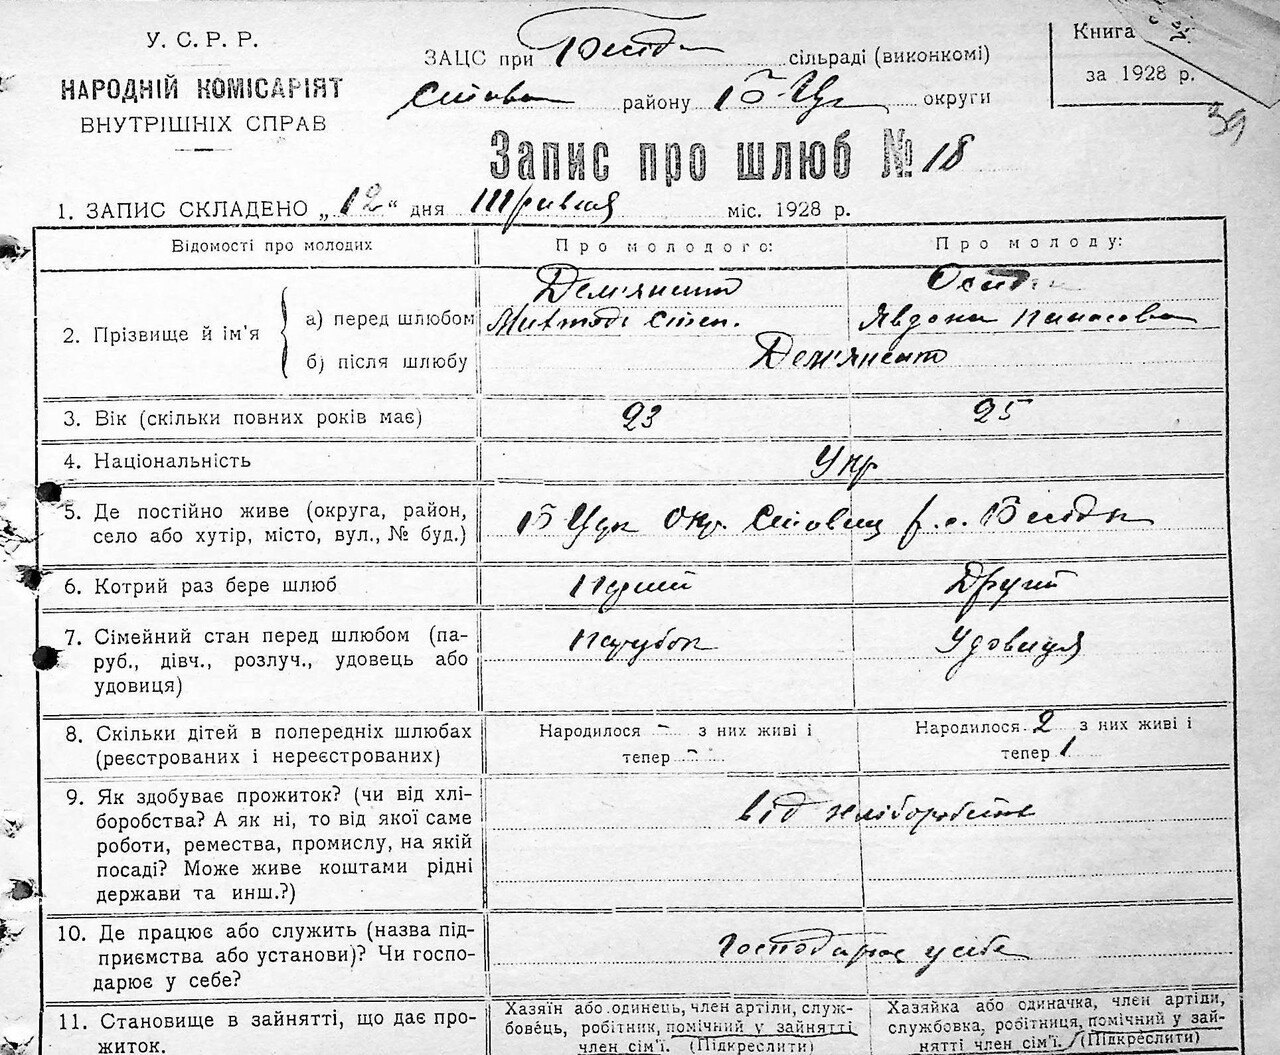 У. С. Р. Р.
НАРОДНІЙ КОМІСАРІЯТ
ВНУТРІШНІХ СПРАВ
ЗАЦС при сільраді (виконкомі)
району Б-Цер округи
Книга
за 1928 р.
39
Запис про шлюб № 18
1. ЗАПИС СКЛАДЕНО „12“ дня Травня міс. 1928 р.
Відомості про молодих
Про молодого:
Про молоду:
2. Прізвище й ім'я
а) перед шлюбом
б) після шлюбу
Явдоха Панасова
3. Вік (скільки повних років має)
23
25
4. Національність
Укр
5. Де постійно живе (округа, район,
село або хутір, місто, вул., № буд.)
Б Церк Окр.
6. Котрий раз бере шлюб
Перший
Другий
7. Сімейний стан перед шлюбом (па-
руб., дівч., розлуч., удовець або
удовиця)
Парубок
Удовиця
8. Скільки дітей в попередніх шлюбах
(реєстрованих і нереєстрованих)
Народилося - з них живі і
тепер -
Народилося 2 з них живі і
тепер 1
9. Як здобуває прожиток? (чи від хлі-
боробства? А як ні, то від якої саме
роботи, ремества, промислу, на якій
посаді? Може живе коштами рідні
держави та инш.?)
від хліборобства
10. Де працює або служить (назва під-
приємства або установи)? Чи госпо-
дарює у себе?
Господарює у себе
11. Становище в зайнятті, що дає про-
житок.
Хазяїн або одинець, член артіли, служ-
бовець, робітник, помічний у зайнятті
член сім'ї. (Підкреслити)
Хазяйка або одиначка, член артіли,
службовка, робітниця, помічний у зай-
нятті член сім'ї. (Підкреслити)